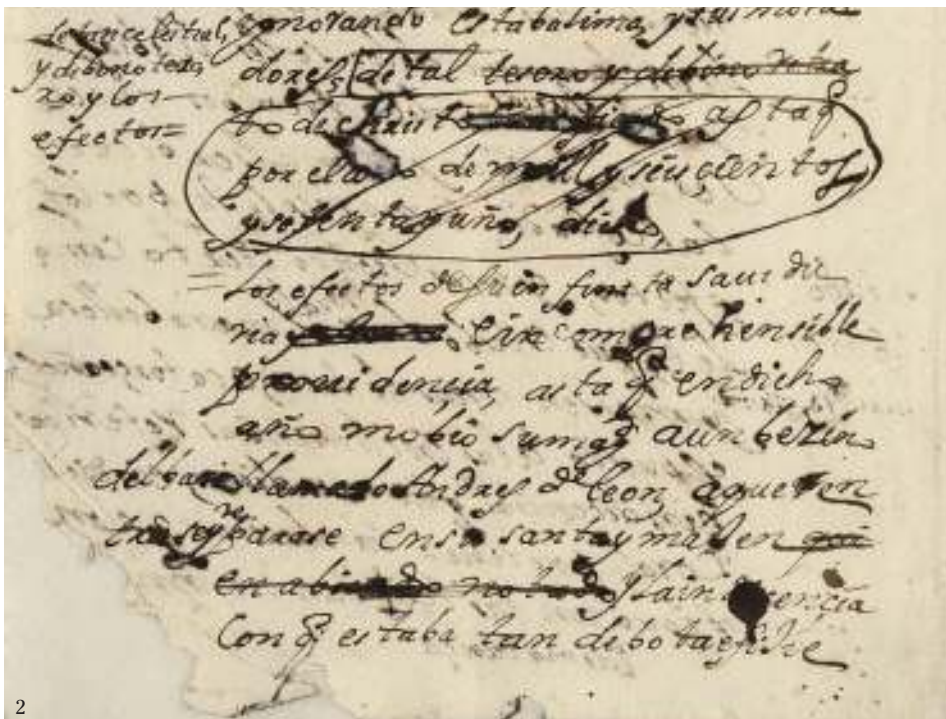 y dibino teso
ro y los
efectos=
ygnorando estaba lima, y sus mora
dores, de tal tesoro y dibino retra
to de Christo astaq
por el año de mill y seisçientos
y setenta y uno,
los efectos de su en finita saui du
ria e incomprehensible
prouidencia, asta q̃ en dicho
año mobio su mag.d a un bezino
del bario llamado Andres de leon, a que en
trase y reparase en su santa ymaxen qui
en abi y la in decençia
Con q̃ estaba tan debota
2